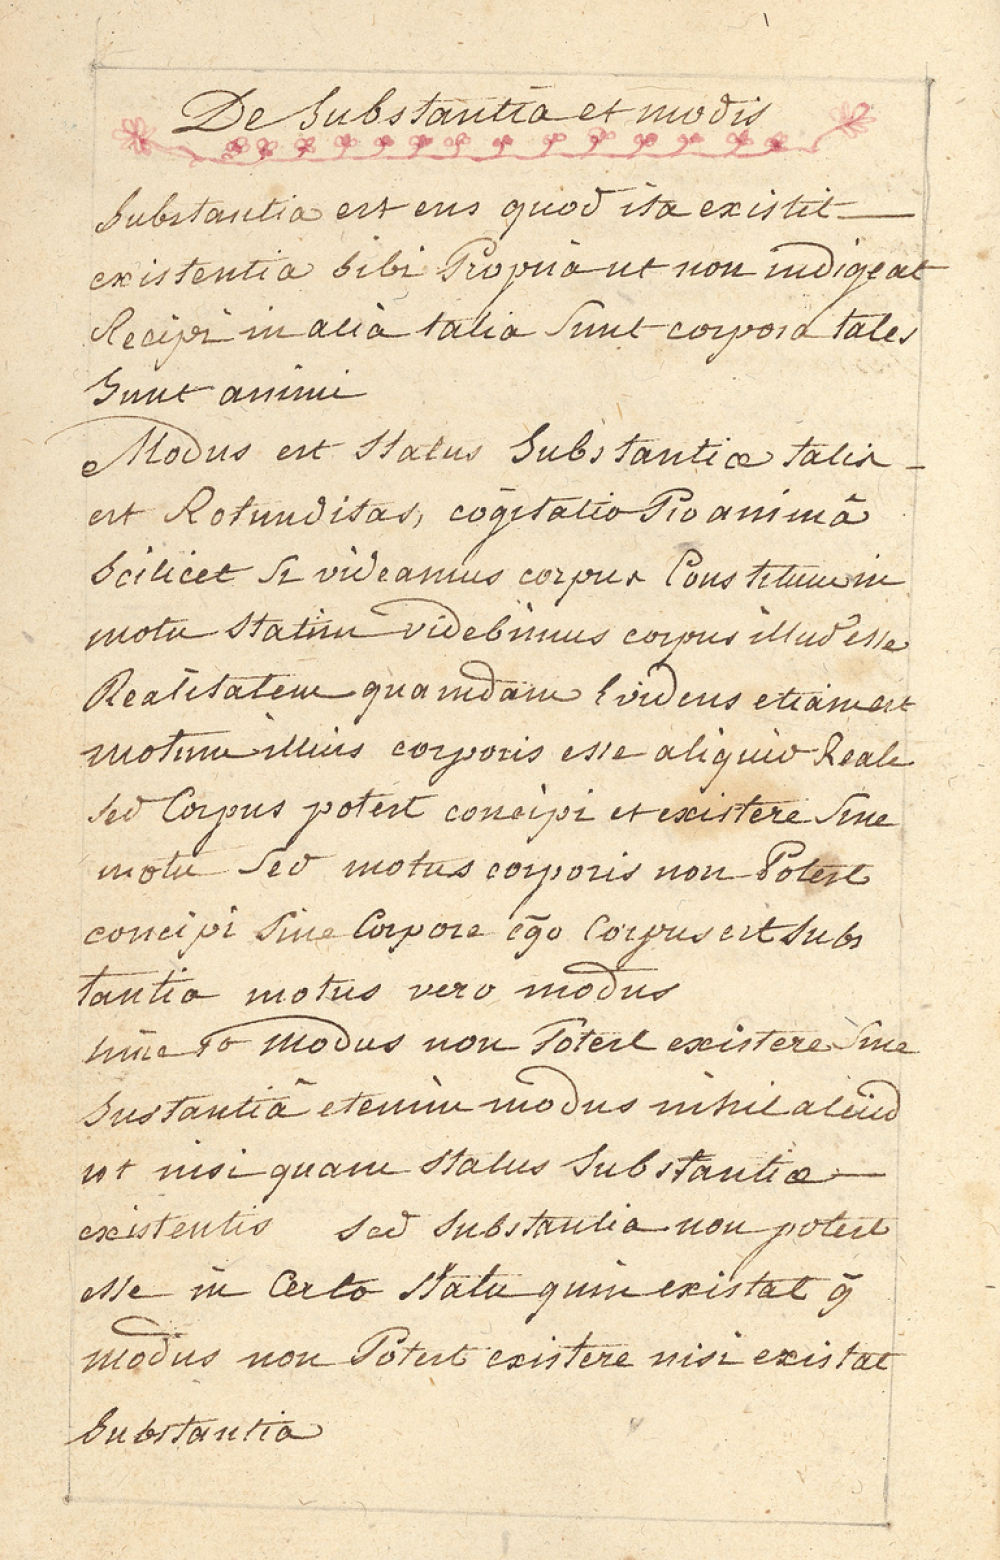 De Substantia et modis
Substantia est ens quod ita existit
existentia sibi Propria ut non indigeat
Recipi in aliâ talia Sunt corpora tales
Sunt animi
Modus est Status Substantiæ talis
est Rotunditas, cōgitatio Pro animâ
Scilicet Si videamus corpus Constitutum in
motu Statim videbimus corpus illud esse
Realitatem quamdam Evidens etiam est
motum illius corporis esse aliquid Reale
Sed Corpus potest concipi et existere Sine
motu Sed motus corporis non Potest
concipi Sine Corpore ēgo Corpus est Subs
tantia motus vero modus
hinc 1o Modus non Potest existere Sine
Sustantiâ etenim modus nihil aliud
est nisi quam Status Substantiæ
existentis Sed Substantia non potest
esse in Certo Statu quin existat ḡ
modus non Potest existere nisi existat
Substantia